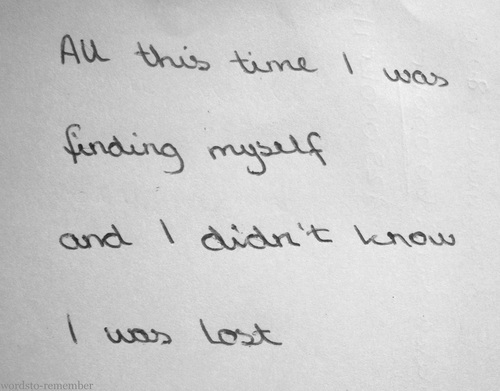 All this time I was
finding myself
and I didn't know
I was lost
wordsto-remember